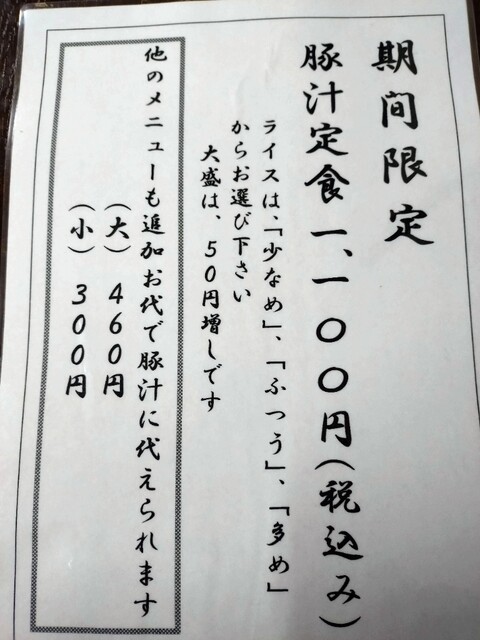 期間限定
豚汁定食 一、一〇〇円(税込み)
ライスは、「少なめ」、「ふつう」、「多め」
からお選び下さい
大盛は、50円増しです
他のメニューも追加お代で豚汁に代えられます
(大) 460円
(小) 300円